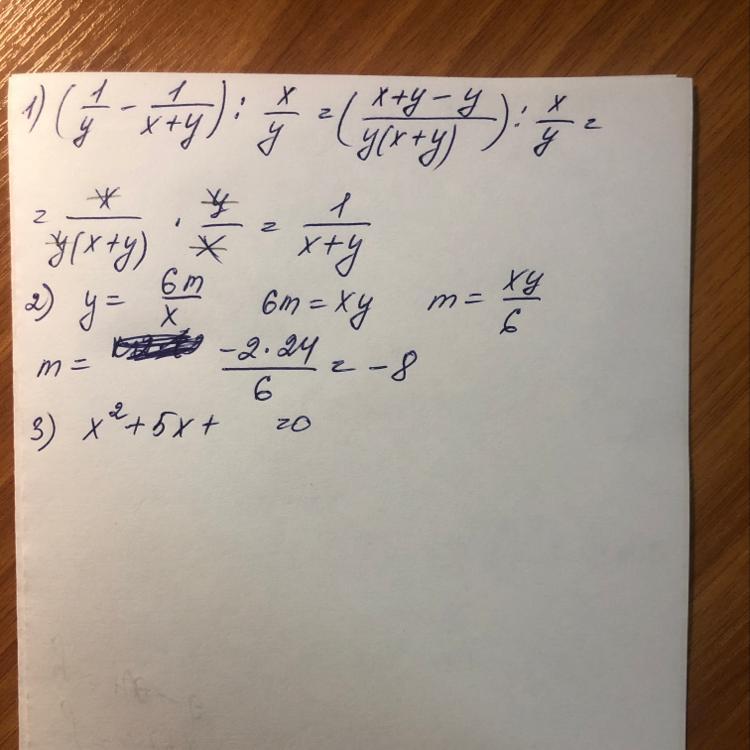 1) (1/y - 1/(x+y)) : x/y = ((x+y-y)/(y(x+y))) : x/y =
= x/(y(x+y)) · y/x = 1/(x+y)
2) y = 6m/x 6m = xy m = xy/6
m = (-2·24)/6 = -8
3) x²+5x+ =0